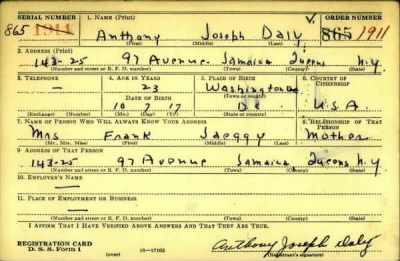 SERIAL NUMBER 1. NAME (Print) ORDER NUMBER
865 1911 Anthony Joseph Daly 865 1911
(First) (Middle) (Last)
2. ADDRESS (Print)
143-25 97 Avenue Jamaica Queens N.Y
(Number and street or R. F. D. number) (Town) (County) (State)
3. TELEPHONE 4. AGE IN YEARS 5. PLACE OF BIRTH 6. COUNTRY OF CITIZENSHIP
— 23 Washington
DATE OF BIRTH (Town or county)
10 7 17 D.C. U.S.A.
(Exchange) (Number) (Mo.) (Day) (Yr.) (State or country)
7. NAME OF PERSON WHO WILL ALWAYS KNOW YOUR ADDRESS 8. RELATIONSHIP OF THAT PERSON
Mrs Frank Jaeggy Mother
(Mr., Mrs., Miss) (First) (Middle) (Last)
9. ADDRESS OF THAT PERSON
143-25 97 Avenue Jamaica Queens N.Y
(Number and street or R. F. D. number) (Town) (County) (State)
10. EMPLOYER'S NAME
—
11. PLACE OF EMPLOYMENT OR BUSINESS
—
(Number and street or R. F. D. number) (Town) (County) (State)
I AFFIRM THAT I HAVE VERIFIED ABOVE ANSWERS AND THAT THEY ARE TRUE.
REGISTRATION CARD
D. S. S. Form 1 (over) 16-17105 Anthony Joseph Daly
(Registrant's signature)